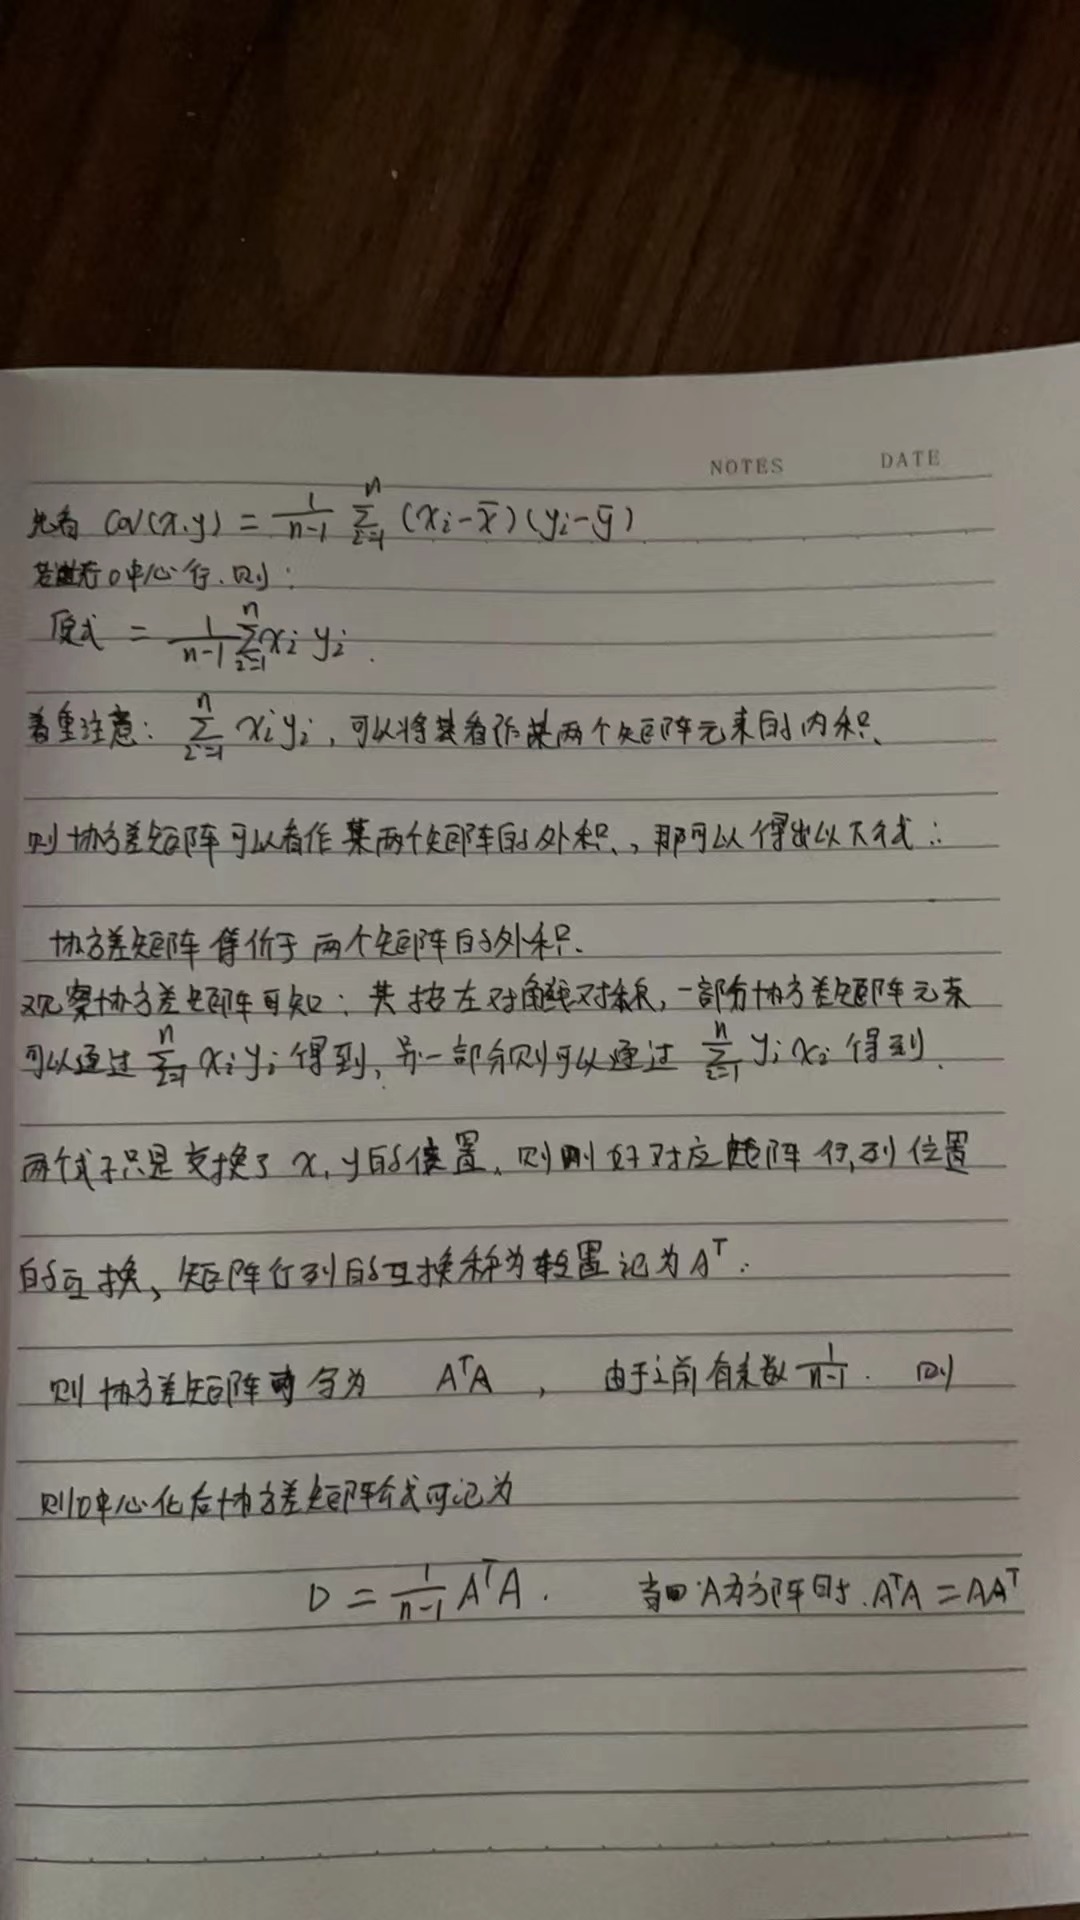 NOTES DATE
先看 Cov(x,y) = \frac{1}{n-1} \sum_{i=1}^{n} (x_i-\bar{x})(y_i-\bar{y})
若进行0中心行,则:
原式 = \frac{1}{n-1} \sum_{i=1}^{n} x_i y_i.
着重注意: \sum_{i=1}^{n} x_i y_i, 可以将其看作某两个矩阵元素的内积、
则协方差矩阵可以看作某两个矩阵的外积、,那可以得出以下式:
协方差矩阵等价于两个矩阵的外积、
观察协方差矩阵可知:其按左对角线对称,一部分协方差矩阵元素
可以通过 \sum_{i=1}^{n} x_i y_i 得到,另一部分则可以通过 \sum_{i=1}^{n} y_i x_i 得到.
两个式子只是交换了 x,y的位置,则刚好对应矩阵行,列位置
的互换、矩阵行列的互换称为转置记为 A^T.
则协方差矩阵可令为 A^TA , 由于之前有系数 \frac{1}{n-1}. 则
则0中心化后协方差矩阵公式可记为
D = \frac{1}{n-1} A^TA. 当 A为方阵时.A^TA = AA^T